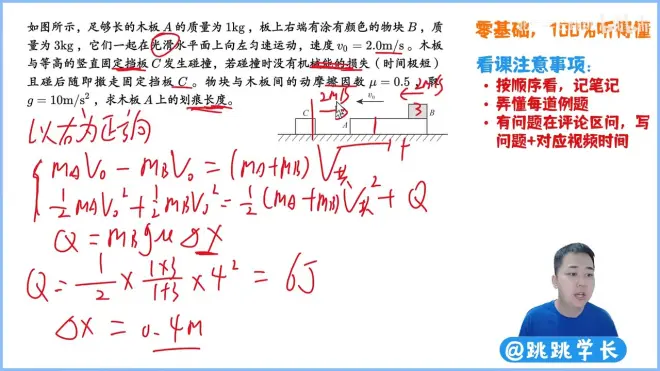 如图所示，足够长的木板 A 的质量为 1kg，板上右端有涂有颜色的物块 B，质
量为 3kg，它们一起在光滑水平面上向左匀速运动，速度 v₀ = 2.0m/s。木板
与等高的竖直固定挡板 C 发生碰撞，若碰撞时没有机械能的损失（时间极短）
且碰后随即撤走固定挡板 C。物块与木板间的动摩擦因数 μ = 0.5，
g = 10m/s²，求木板 A 上的划痕长度。
零基础，100%听得懂
看课注意事项：
• 按顺序看，记笔记
• 弄懂每道例题
• 有问题在评论区问，写
问题+对应视频时间
C
A
v₀
B
3
1
以右为正方向
mAV₀ - mBV₀ = (mA+mB)V共
½mAV₀² + ½mBV₀² = ½(mA+mB)V共² + Q
Q = mBgμΔX
Q = 1/2 × 1×3/1+3 × 4² = 6J
ΔX = 0.4M
@跳跳学长